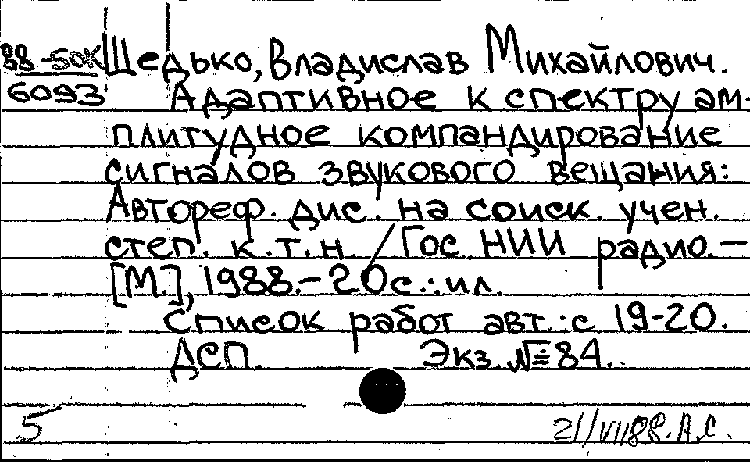 88-50К Шедько, Владислав Михайлович.
6093 Адаптивное к спектру ам-
плитудное компандирование
сигналов звукового вещания:
Автореф. дис. на соиск. учен.
степ. к.т.н. / Гос. НИИ радио. —
[М.], 1988. - 20 с.: ил.
Список работ авт.: с 19-20.
ДСП. Экз. № 84.
5 21/VII88. А.С.